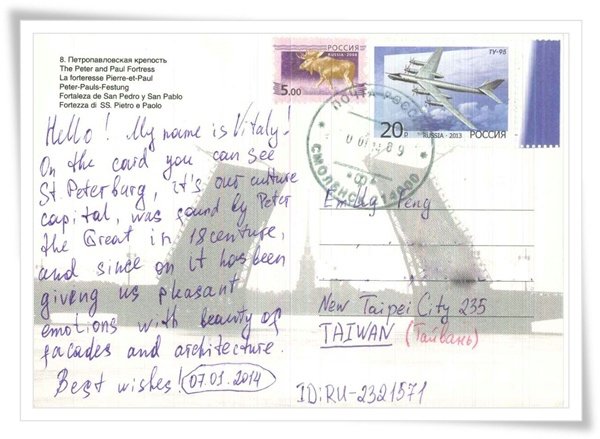 8. Петропавловская крепость
The Peter and Paul Fortress
La forteresse Pierre-et-Paul
Peter-Pauls-Festung
Fortaleza de San Pedro y San Pablo
Fortezza di SS. Pietro e Paolo
Hello! My name is Vitaly!
On the card you can see
St. Peterburg, it's our culture
capital, was found by Peter
the Great in 18 centure,
and since on it has been
giveng us pleasant
emotions with beauty of
facades and architecture.
Best wishes! 07.01.2014
РОССИЯ
RUSSIA • 2008
5.00
ТУ-95
20р
RUSSIA • 2013 РОССИЯ
ПОЧТА РОССИИ
СМОЛЕНСК
Peng
New Taipei City 235
TAIWAN (Тайвань)
ID:RU-2321571